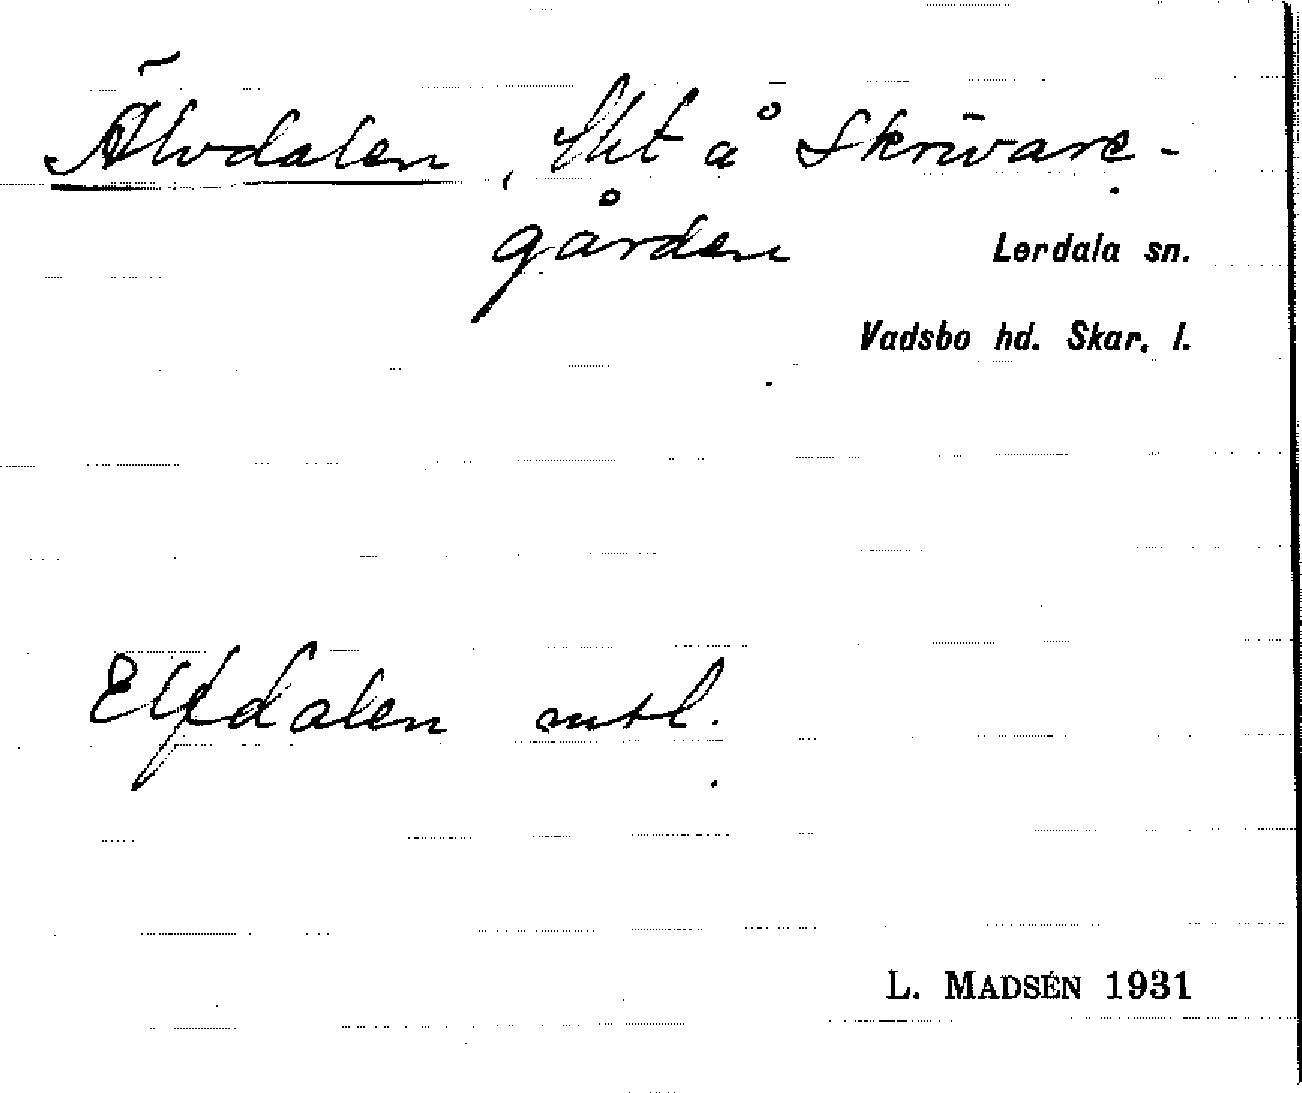 Älvdalen, lht å Skrivare-
gården
Lerdala sn.
Vadsbo hd. Skar. l.
Elfdalen mtl.
L. MADSÉN 1931